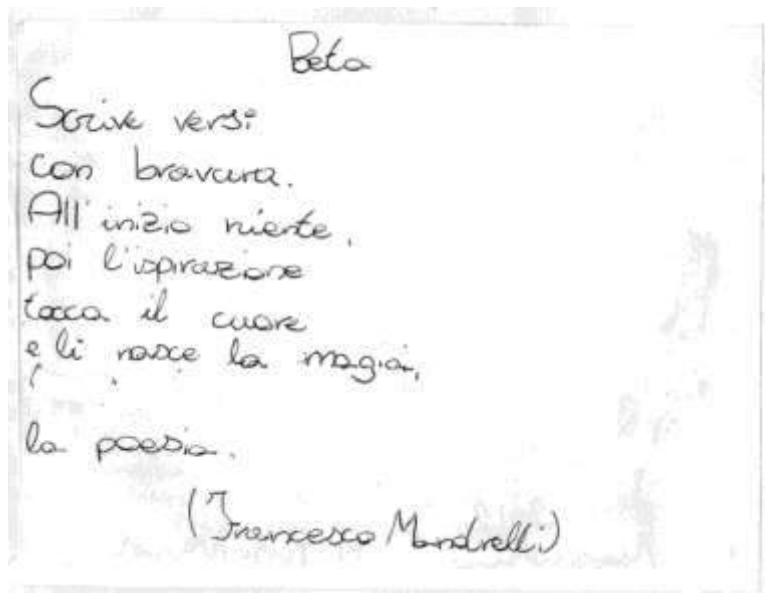 Beta
Scrive versi
con bravura.
All'inizio niente,
poi l'ispirazione
tocca il cuore
e lì nasce la magia,
la poesia.
(Francesco Mandrelli)